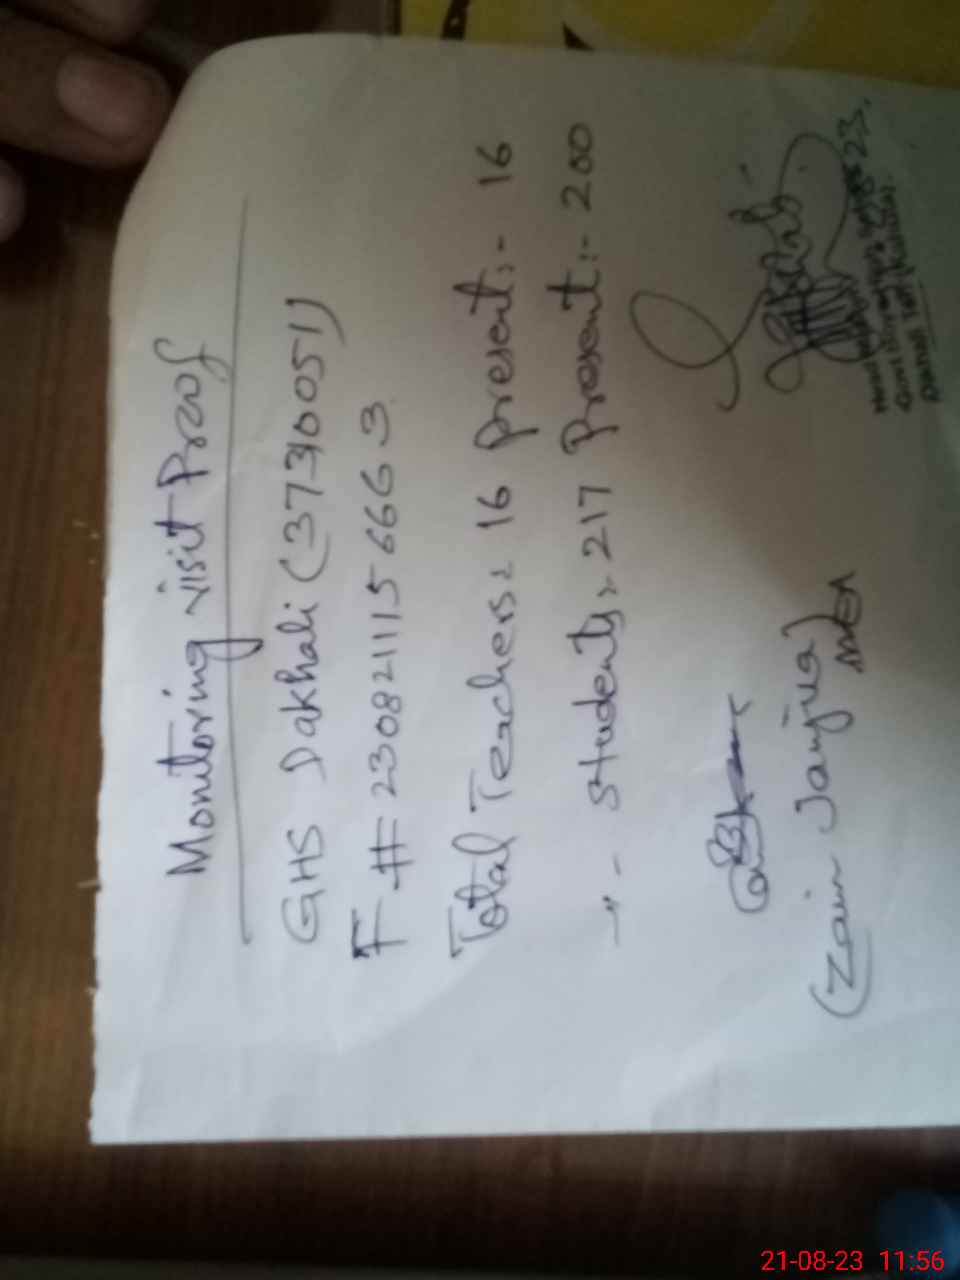 Monitoring visit Proof
GHS Dakhali (37310051)
F # 2308211156663
Total Teachers = 16 Present:- 16
-"- Students = 217 Present:- 200
(Zain Janjua)
MEA
23.
21-08-23 11:56